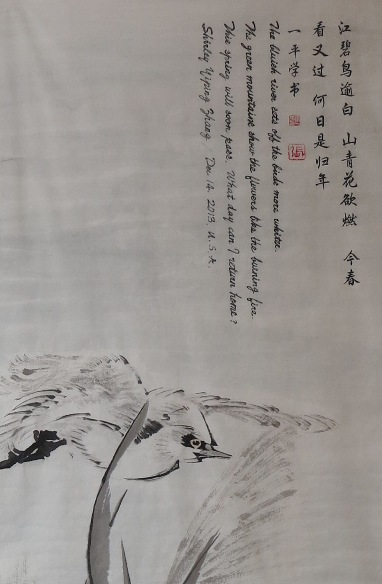 江碧鸟逾白 山青花欲燃 今春
看又过 何日是归年
一平学书
The bluish river sets off the birds more whiter.
The green mountains show the flowers like the burning fire.
This spring will soon pass. What day can I return home?
Shirley Yiping Zhang Dec 14. 2013. U.S.A.